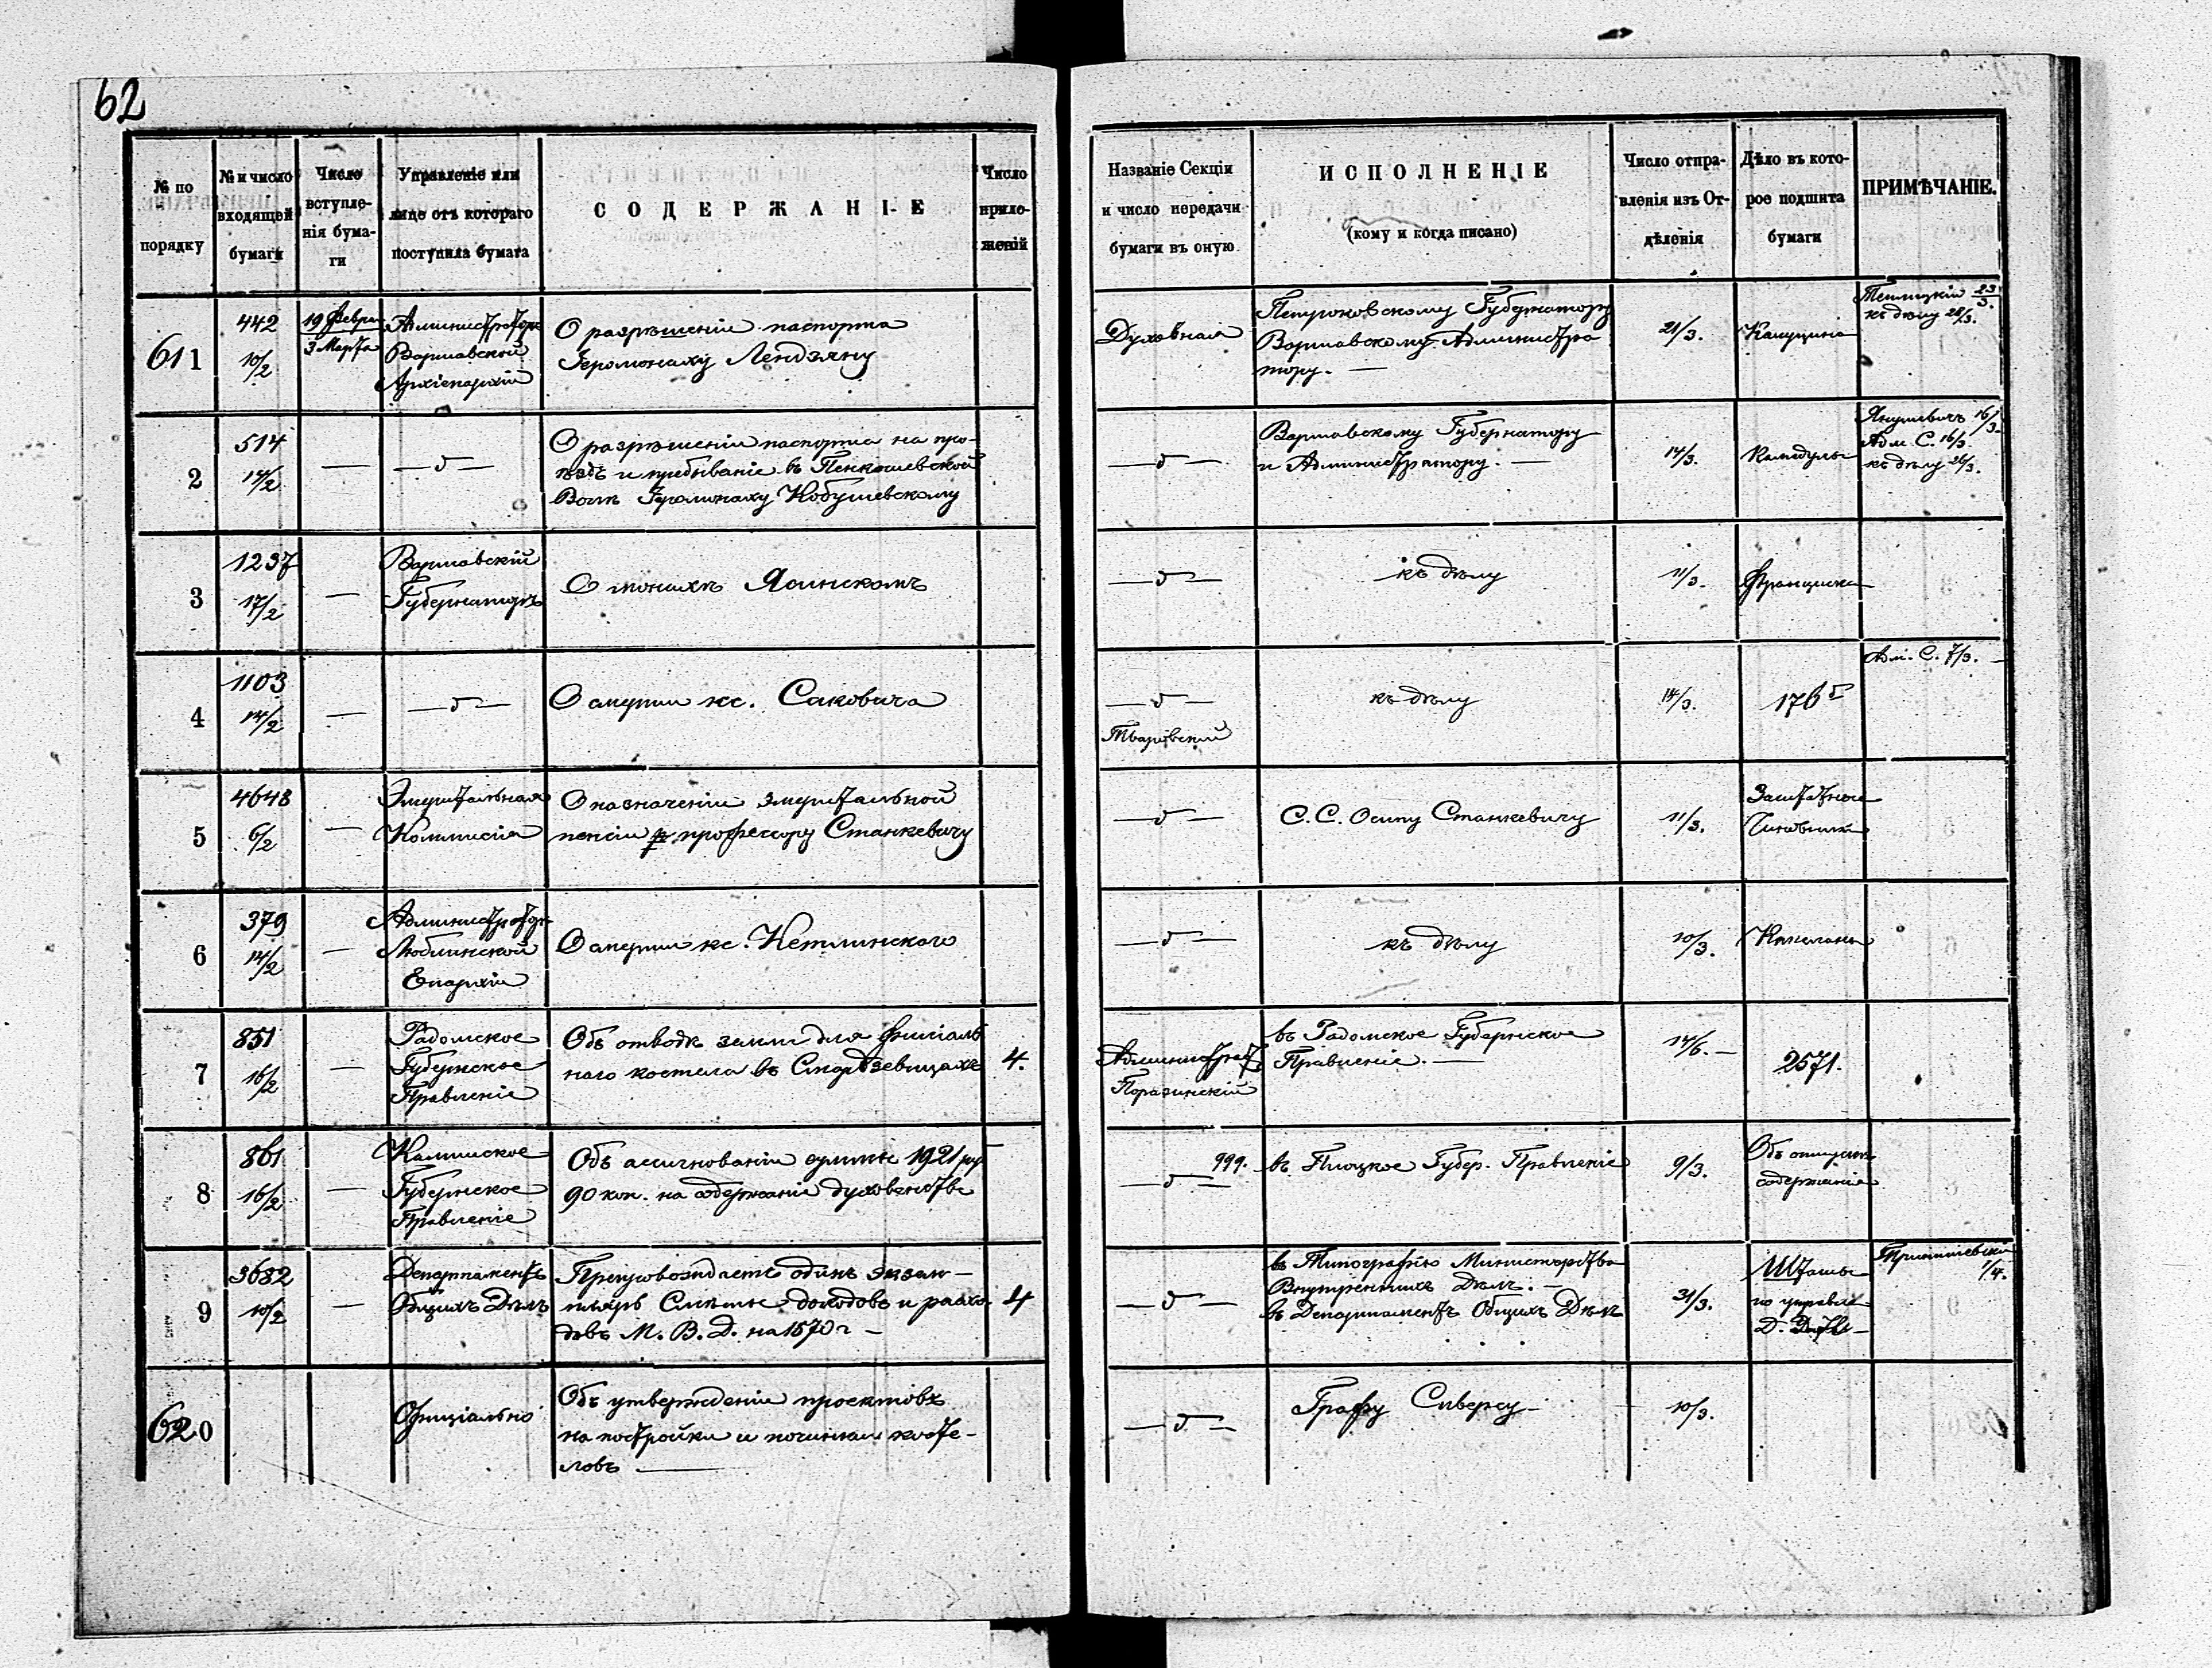 62
№ по порядку
№ и число входящей бумаги
Число вступленія бумаги
Управленіе или лице отъ котораго поступила бумага
СОДЕРЖАНІЕ
Число приложеній
Названіе Секціи и число передачи бумаги въ оную
ИСПОЛНЕНІЕ
(кому и когда писано)
Число отправленія изъ Отдѣленія
Дѣло въ которое подшита бумаги
ПРИМѢЧАНІЕ.
611
442
10/2
19 Февра
3 Марта
Администраторъ
Варшавской
Архіепархіи
О разрѣшеніи паспорта
Іеромонаху Лендзяну
Духовная
Петроковскому Губернатору
Варшавскому Администра
тору. —
21/3.
Капуцина
23/3.
къ дѣлу 28/3.
2
514
14/2
—
— д —
О разрѣшеніи паспорта на про-
ѣздъ и пребываніе въ
Іеромонаху Кобушевскому
— д —
Варшавскому Губернатору
и Администратору. —
14/3.
Камедулы
Янушевичъ 16/3.
Адм. С. 16/3.
къ дѣлу 26/3.
3
1237
17/2
—
Варшавскій
Губернаторъ
О монахѣ Ясинскомъ
— д —
къ дѣлу
11/3.
Франциска
4
1103
14/2
—
— д —
О смерти кс. Саковича
— д —
къ дѣлу
14/3.
176
Адм. С. 7/3. —
5
4648
6/2
—
Эмеритальная
Коммисія
О назначеніи эмеритальной
пенсіи профессору Станкевичу
— д —
С. С. Осипу Станкевичу
11/3.
Заштатные
Чиновники
6
379
14/2
—
Администраторъ
Люблинской
Епархіи
О смерти кс. Кетлинскаго
— д —
къ дѣлу
10/3.
7
851
16/2
—
Радомское
Губернское
Правленіе
Объ отводѣ земли для филіаль
наго костела въ
4.
Администрат
Поразинскій
въ Радомское Губернское
Правленіе. —
14/6. —
2571.
8
861
16/2
—
Калишское
Губернское
Правленіе
Объ ассигнованіи суммы 1921 руб
90 коп. на содержаніе духовенства
— д —
999.
въ Плоцкое Губер. Правленіе
9/3.
Объ отпускѣ
содержанія
9
3682
10/2
—
Департаментъ
Общихъ Дѣлъ
Препровождаетъ одинъ экзем-
пляръ Смѣты доходовъ и расхо-
довъ М. В. Д. на 1870 г —
4
— д —
въ Типографію Министерства
Внутреннихъ Дѣлъ. —
въ Департаментъ Общихъ Дѣлъ
31/3.
Штаты
по управл
1/4.
620
Офиціально
Объ утвержденіи проектовъ
на постройки и починки косте-
ловъ —
— д —
Графу Сиверсу —
10/3.